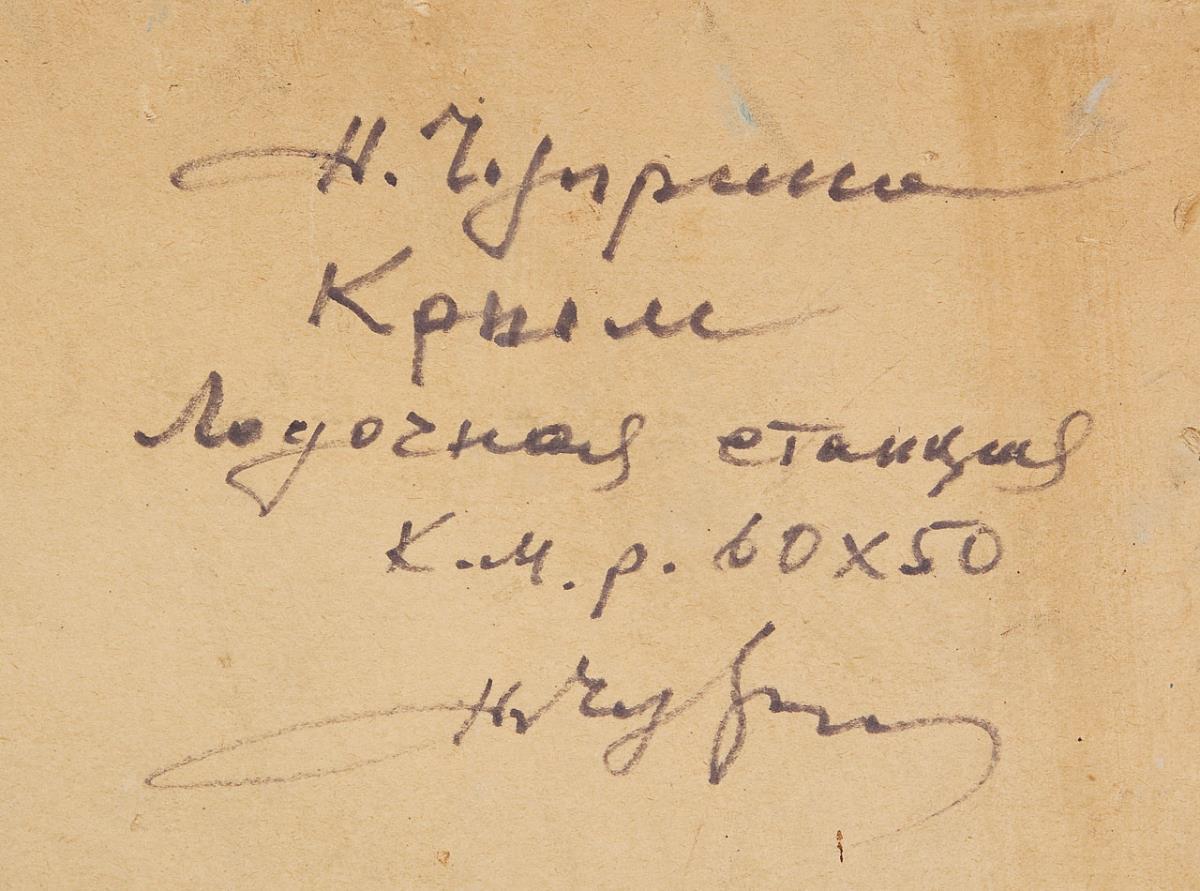 Н. Чуприна
Крым
Лодочная станция
К.М.р. 60х50
Н. Чуприна